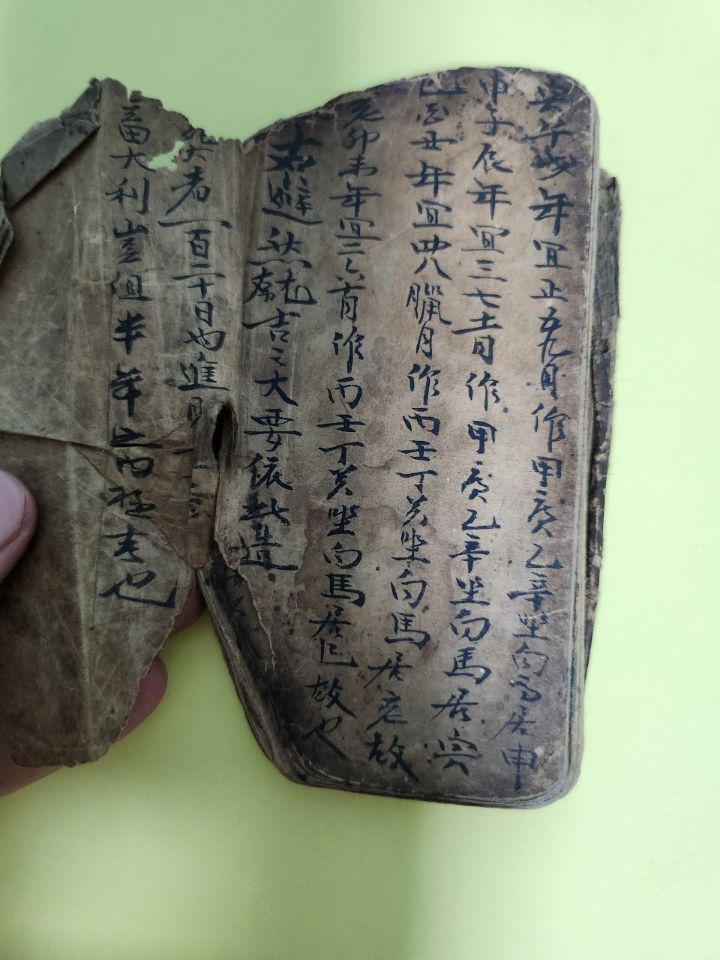 寅午戌年宜正五九月作甲庚乙辛坐向馬居申
申子辰年宜三七十一月作甲庚乙辛坐向馬居寅
巳酉丑年宜四八臘月作丙壬丁癸坐向馬居亥故
亥卯未年宜二六十月作丙壬丁癸坐向馬居巳故也
避然就吉之大要依此造
者一百二十日內進
畜大利豈但半年之內祿吉也